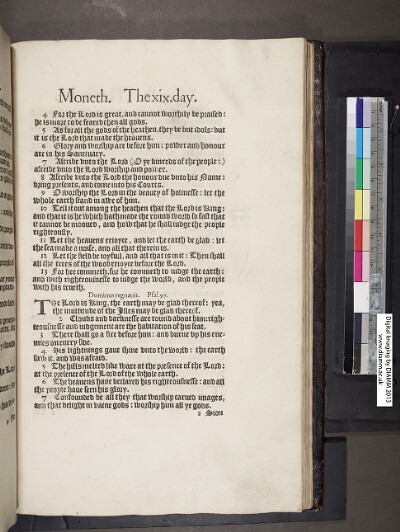 Moneth. The xix. day.
4 For the Lord is great, and cannot worthily be praised:
he is more to be feared then all gods.
5 As for all the gods of the heathen, they be but idols: but
it is the Lord that made the heauens.
6 Glory and worship are before him: power and honour
are in his Sanctuary.
7 Ascribe vnto the Lord (O ye kinreds of the people:)
ascribe vnto the Lord worship and power.
8 Ascribe vnto the Lord the honour due vnto his Name:
bring presents, and come into his Courts.
9 O worship the Lord in the beauty of holinesse: let the
whole earth stand in awe of him.
10 Tell it out among the heathen that the Lord is King:
and that it is he which hath made the round world so fast that
it cannot be mooued, and how that he shall iudge the people
righteously.
11 Let the heauens reioyce, and let the earth be glad: let
the sea make a noise, and all that therein is.
12 Let the field be ioyfull, and all that is in it: Then shall
all the trees of the wood reioyce before the Lord.
13 For he commeth, for he commeth to iudge the earth:
and with righteousnesse to iudge the world, and the people
with his trueth.
Dominus regnauit. Psal.97.
The Lord is King, the earth may be glad thereof: yea,
the multitude of the Iles may be glad thereof.
2 Clouds and darkenesse are round about him: righ-
teousnesse and iudgement are the habitation of his seat.
3 There shall go a fire before him: and burne vp his ene-
mies on euery side.
4 His lightnings gaue shine vnto the world: the earth
saw it, and was afraid.
5 The hills melted like waxe at the presence of the Lord:
at the presence of the Lord of the whole earth.
6 The heauens haue declared his righteousnesse: and all
the people haue seen his glory.
7 Confounded be all they that worship carued images,
and that delight in vaine gods: worship him all ye gods.
8 Sion
Digital Imaging by DIAMM 2013
www.diamm.ac.uk